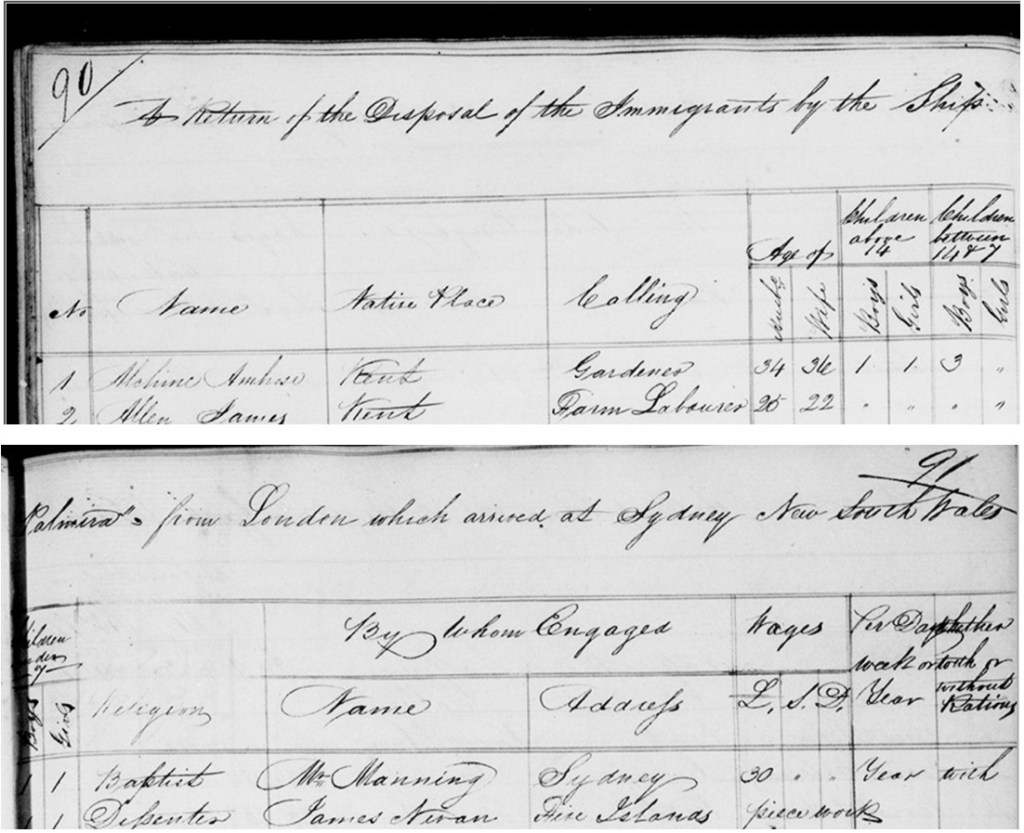 90
A Return of the Disposal of the Immigrants by the Ship
Children above 14
Children between 14 & 7
Age of
No Name Native Place Calling Husbd Wife Boys Girls Boys Girls
1 Ambrose Kent Gardener 34 36 1 1 3 "
2 Allen James Kent Farm Labourer 25 22 " " " "
91
Palmira" from London which arrived at Sydney New South Wales
Children under 7
By Whom Engaged Wages Per Day week or Year Whether with or without Rations
Boys Girls Religion Name Address L. S. D.
1 1 Baptist Mr Manning Sydney 30 " " Year with
1 1 Dissenter James Five Islands piece work